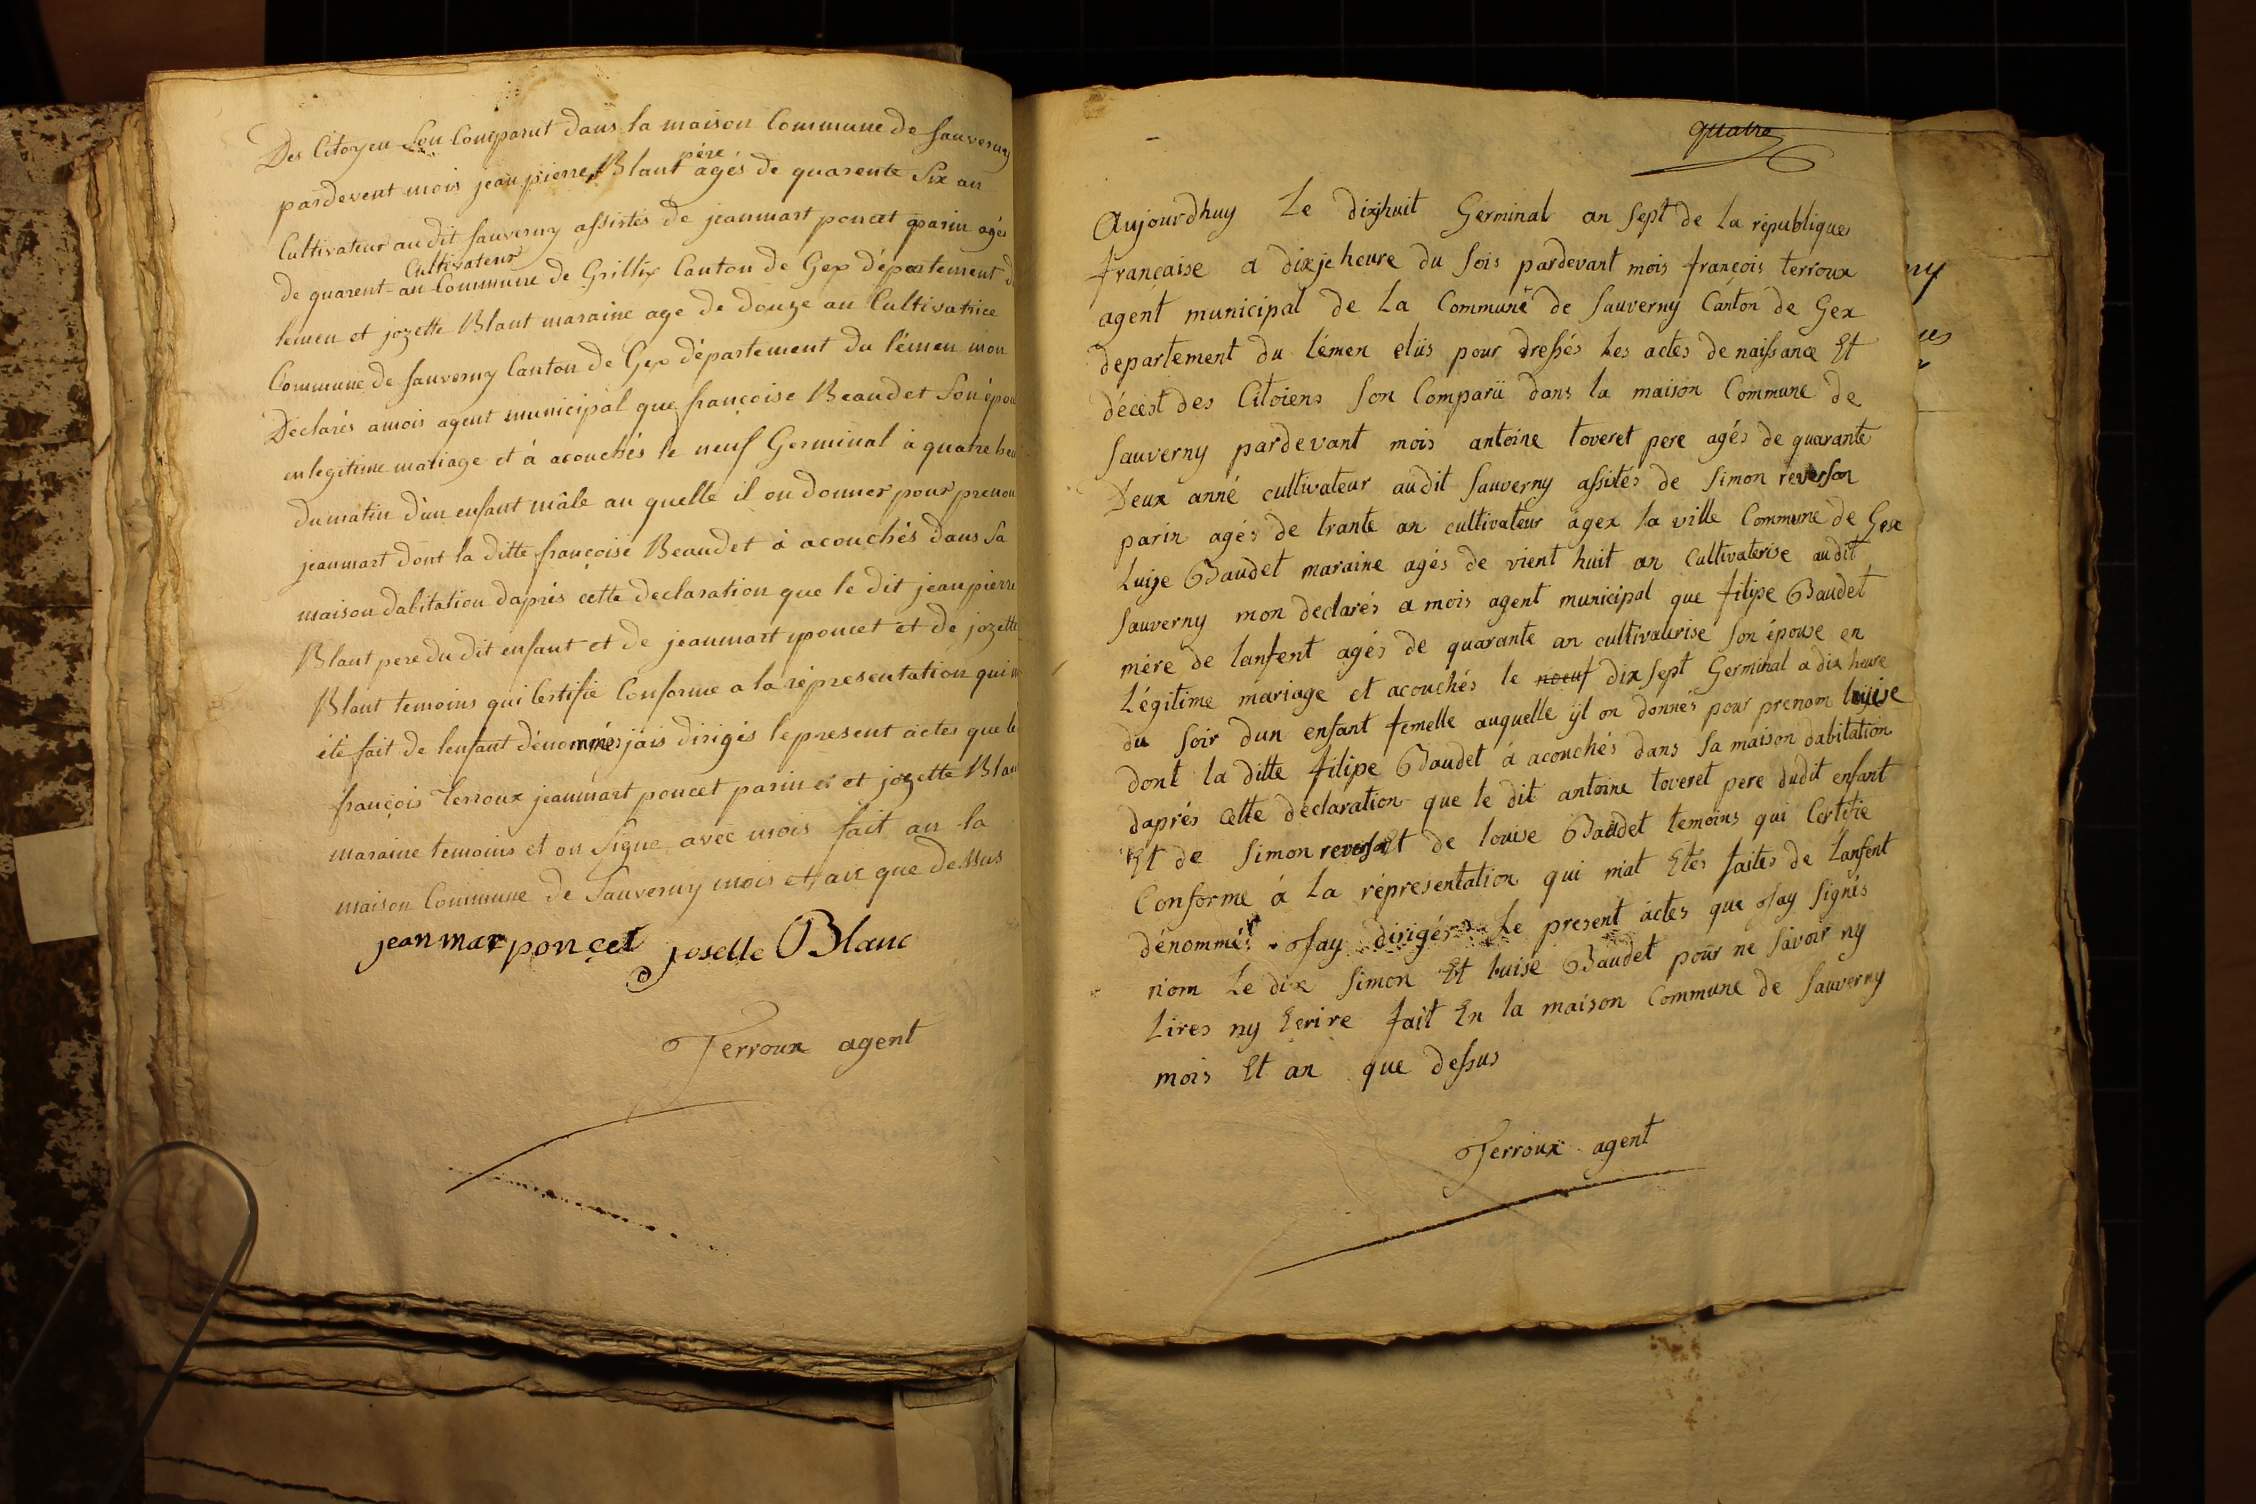 Des Citoyen Son Comparut dans la maison Commune de Sauverny
pardevent mois jean pierre Blant père agés de quarente Six an
Cultivateur au dit Sauverny assistés de jeanmart poncet parin agés
de quarent an Cultivateur Commune de Grillix Canton de Gex département d
lemen et jozette Blant maraine age de douze an Cultivatrice
Commune de Sauverny Canton de Gex département du lémen mon
Déclarés amois agent municipal que françoise Beaudet Son épou
en legitime mariage et à acouchés le neuf Germinal à quatre heu
du matin d'un enfant mâle au quelle il on donner pour prenom
jeanmart dont la ditte françoise Beaudet à acouchés dans Sa
maison dabitation daprés cette declaration que le dit jeanpierre
Blant pere du dit enfant et de jeanmart poncet et de jozette
Blant temoins qui Certifie Conforme a la répresentation qui m
été fait de lenfant dénommés jais dirigés le present actes que le
françois terroux jeanmart poncet parin et jozette Blan
maraine temoins et on Signe avec mois fait an la
maison Commune de Sauverny mois et, an que dessus
jean mar poncet joselle Blanc
Terroux agent
quatre
Aujourdhuy Le dixjhuit Germinal an Sept de La républiques
française a dixjeheure du Sois pardevant mois françois terroux
agent municipal de La Commune de Sauverny Canton de Gex
departement du Lémen elüs pour dressés Les actes de naissance Et
décest des Citoiens Son Comparü dans la maison Commune de
Sauverny pardevant mois antoine toveret pere agés de quarante
Deux anné cultivateur audit Sauverny assités de Simon reverson
parin agés de trante an cultivateur agex la ville Commune de Gex
Luise Baudet maraine agés de vient huit an Cultivaterise audit
Sauverny mon declarés a mois agent municipal que filipe Baudet
mére de lanfent agés de quarante an cultivaterise Son épouse en
Légitime mariage et acouchés le noeuf dix Sept Germinal a dix heure
du Soir dun enfant femelle auquelle ijl on donnés pour prenom luise
dont la ditte filipe Baudet á acouchés dans Sa maison dabitation
daprés cette déclaration que le dit antoine toveret pere dudit enfant
Et de Simon reverson Et de louise Baudet temoins qui Certifie
Conforme á La réprésentation qui mat Etés faites de Lanfent
dénommés Jay dirigérs Le present actes que Jay Signés
nom Le dix Simon Et luise Baudet pour ne Savoir ny
Lires ny Ecrire fait En la maison Commune de Sauverny
mois Et an que dessus
Terroux agent